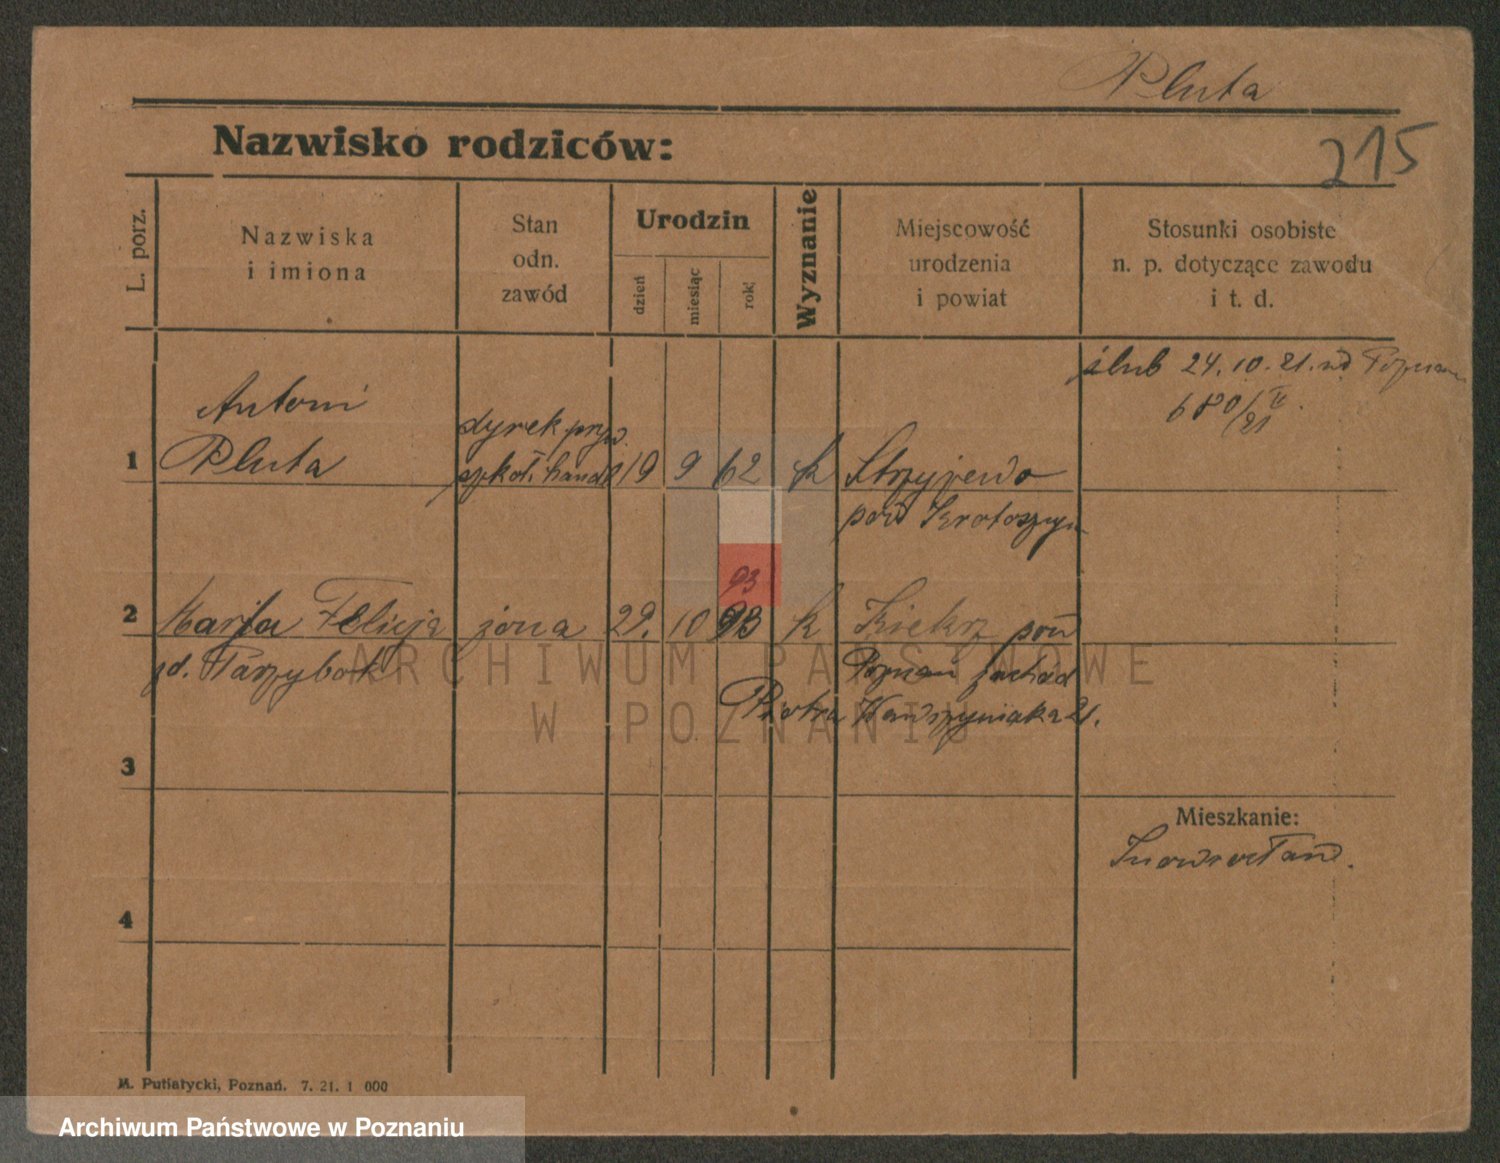 Pluta
215
Nazwisko rodziców:
L. porz.
Nazwiska
i imiona
Stan
odn.
zawód
Urodzin
dzień
miesiąc
rok
Wyznanie
Miejscowość
urodzenia
i powiat
Stosunki osobiste
n. p. dotyczące zawodu
i t. d.
ślub 24. 10. 21. Poznań
680/21 II
1
Antoni
Pluta
dyrek pryw.
szkoł. handl
19 9 62 k
Strzyżewo
pow Krotoszyn
2
93
Marja Felicja żona 29. 10 93 k Kiekrz pow
zd. Poznań zachód
Piotra Wawrzyniaka 21.
3
Mieszkanie:
Inowrocław.
4
M. Putiatycki, Poznań. 7. 21. 1 000
ARCHIWUM PAŃSTWOWE
W POZNANIU
Archiwum Państwowe w Poznaniu